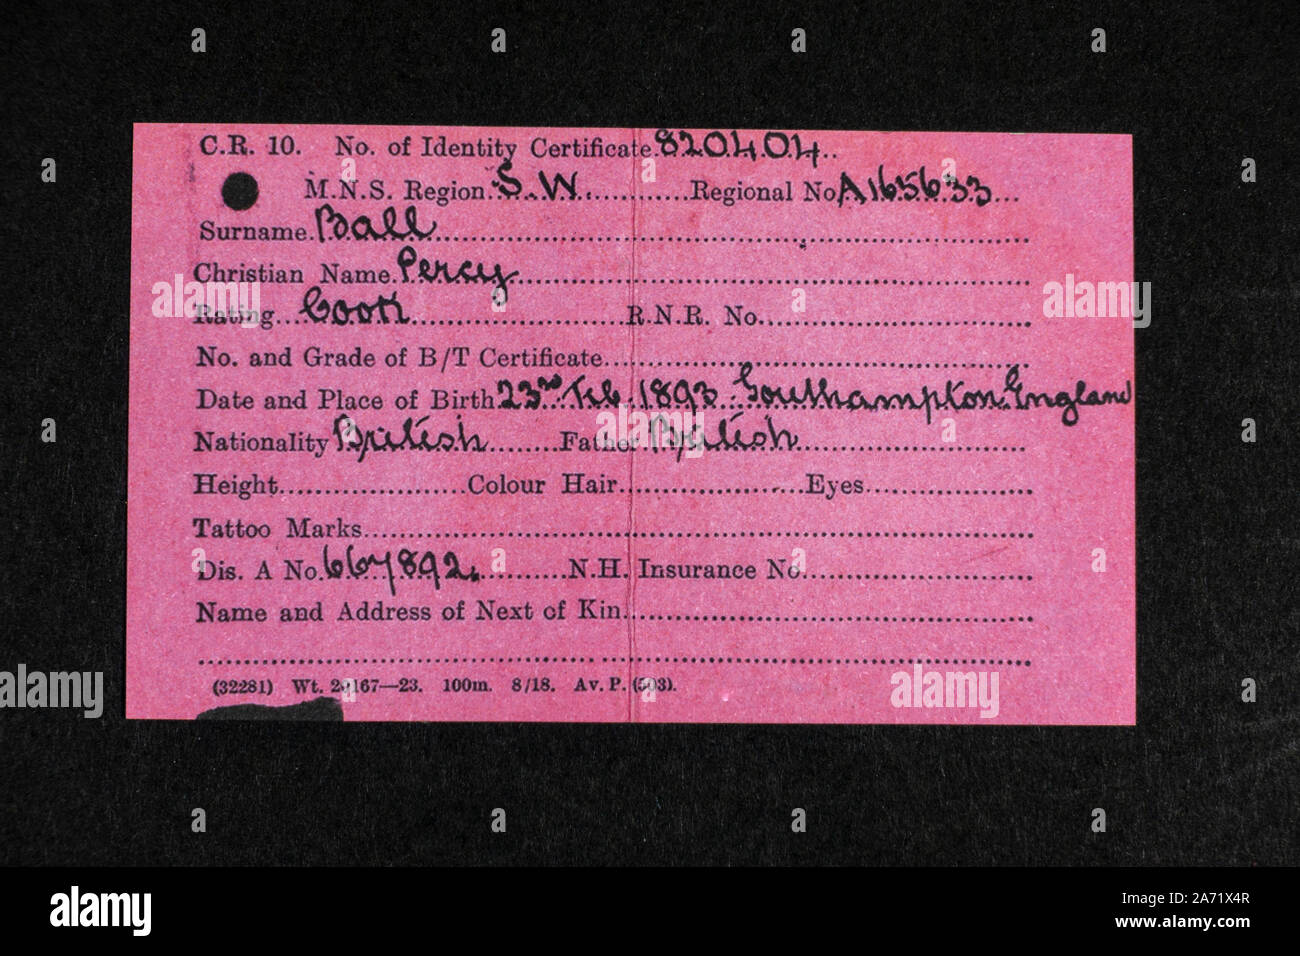 C.R. 10. No. of Identity Certificate. 820404..
M.N.S. Region. S.W. Regional No. A165633...
Surname. Ball
Christian Name. Percy
Rating... Cook R.N.R. No.
No. and Grade of B/T Certificate
Date and Place of Birth 23rd Feb 1893. Southampton. England
Nationality British Father British
Height Colour Hair Eyes
Tattoo Marks
Dis. A No. 667892. N.H. Insurance No.
Name and Address of Next of Kin
(32281) Wt. 167—23. 100m. 8/18. Av. P. (503).
alamy
Image ID: 2A71X4R
www.alamy.com